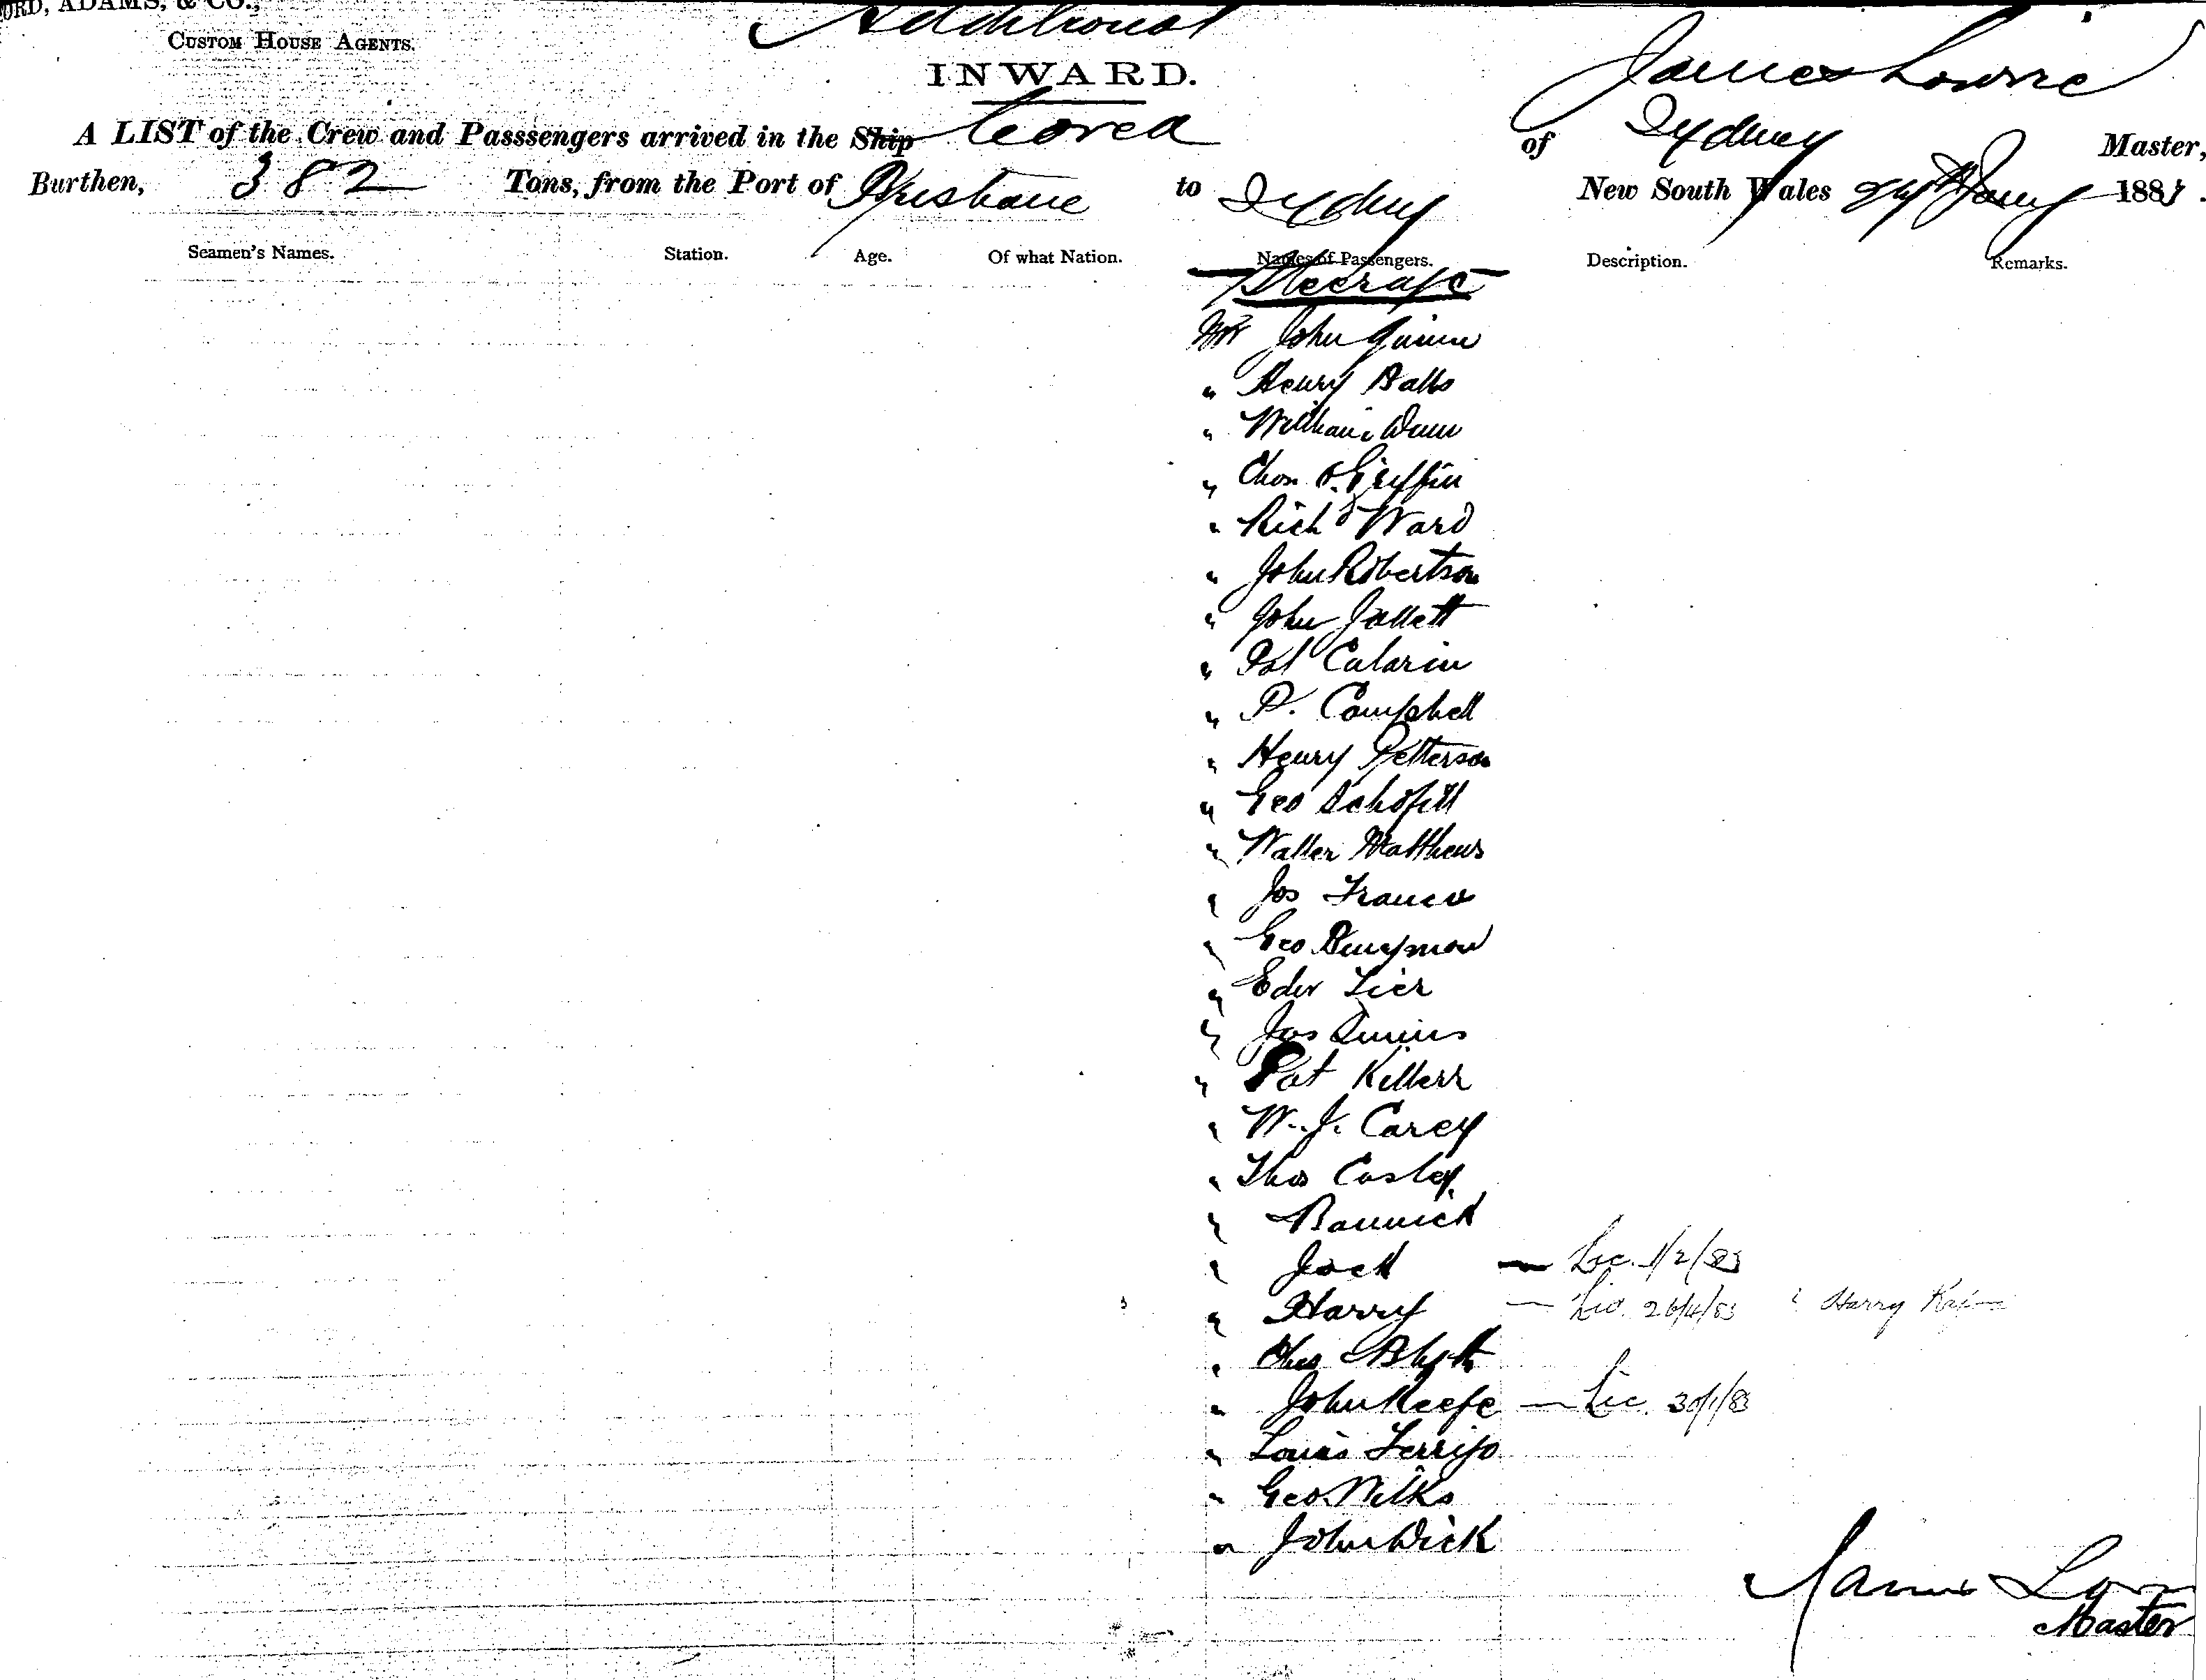 ORD, ADAMS, & CO.,
CUSTOM HOUSE AGENTS.
Additional
INWARD.
James Lowrie
A LIST of the Crew and Passsengers arrived in the Ship Corea of Sydney Master,
Burthen, 382 Tons, from the Port of Brisbane to Sydney New South Wales 24th Jany 1883.
Seamen's Names. Station. Age. Of what Nation. Names of Passengers. Description. Remarks.
Steerage
Mr John Quinn
" Henry Balls
" William Dunn
" Thos Griffin
" Richd Ward
" John Robertson
" John Jallett
" Pat Calarin
" P. Campbell
" Henry Petterson
" Geo Schofill
" Walter Matthews
" Jos Franco
" Geo
" Edw Lier
" Jas
" Pat Killerr
" W. J. Carey
" Thos Cosley
" Bannick
" Jack — Lic. 1/2/83
" Harry — Lic. 26/4/83 Harry
" Chas Blyth
" John Keefe — Lic. 30/1/83
" Louis Ferrijo
" Geo Wilks
" John Dick
James
Master